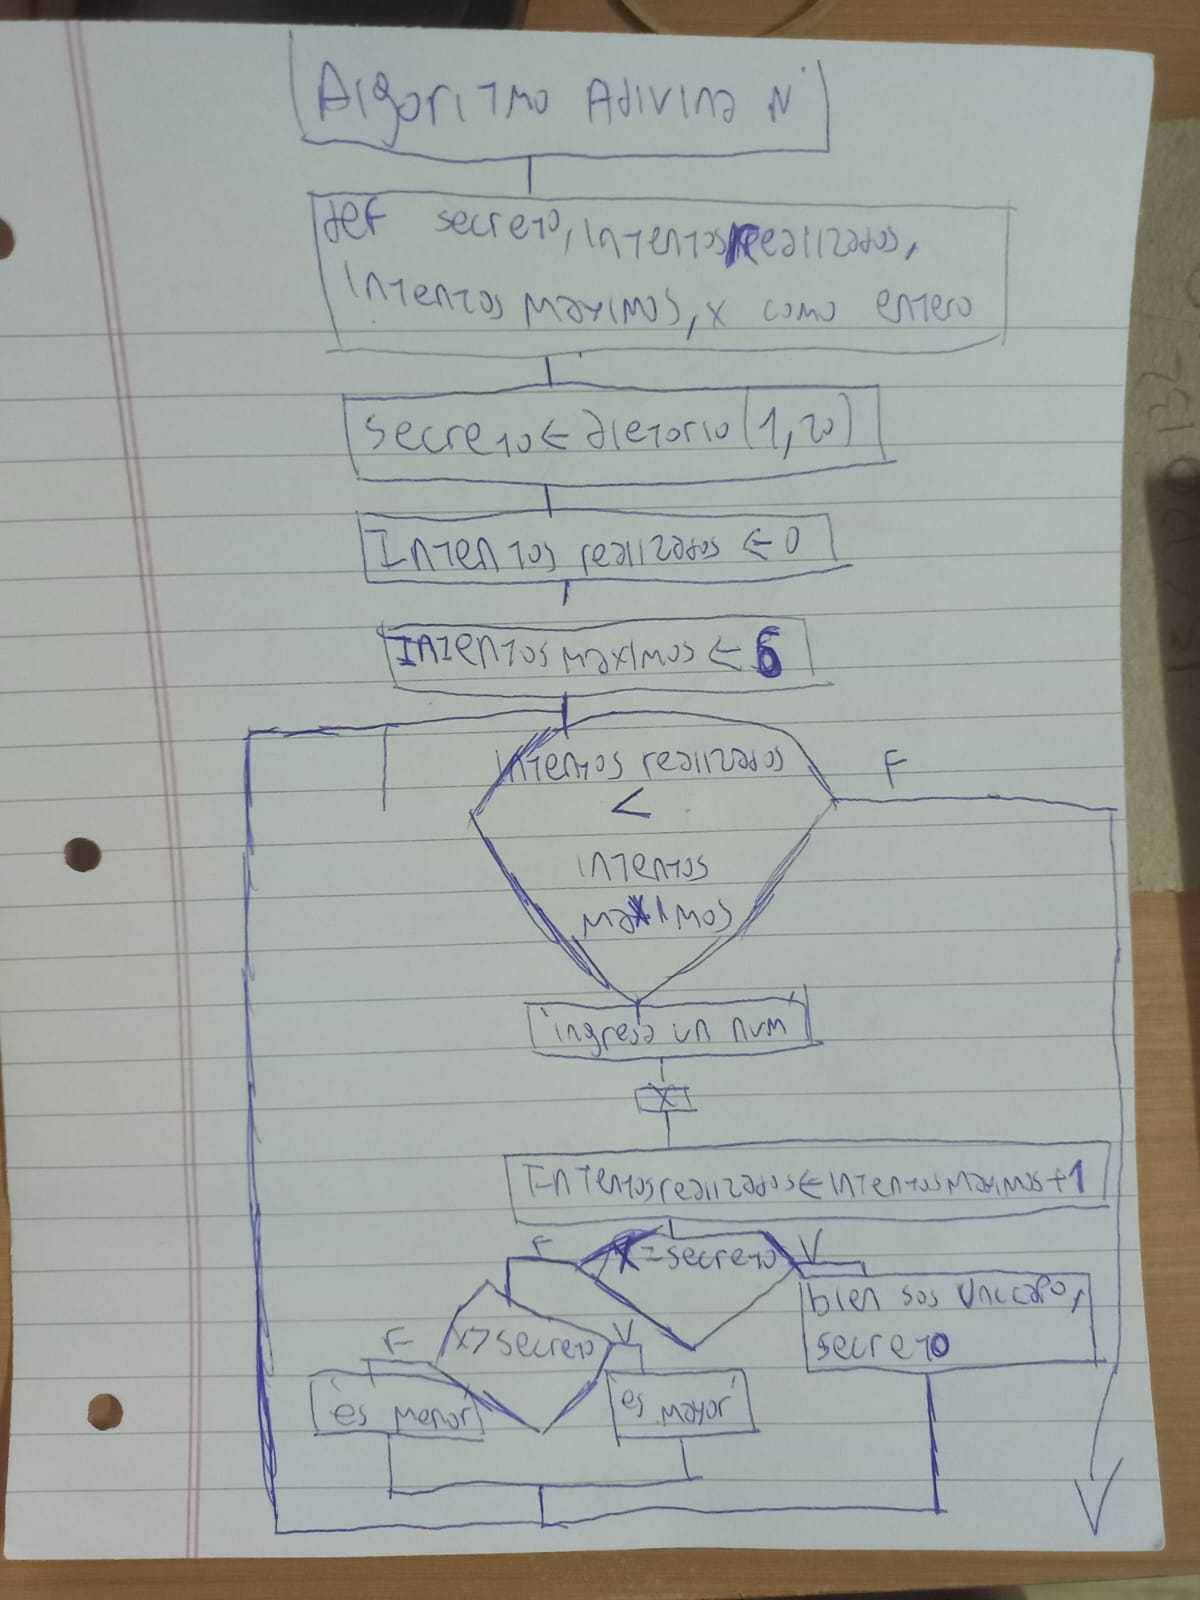 Algoritmo Adivina N°
def secreto, intentos realizados,
intentos maximos, x como entero
secreto ← aletorio (1,20)
Intentos realizados ← 0
Intentos maximos ← 6
intentos realizados
F
<
intentos
maximos
"ingresa un num"
x
Intentos realizados ← intentos maximos + 1
F
x = secreto
V
bien sos un capo,
secreto
F
x > secreto
V
"es menor"
"es mayor"